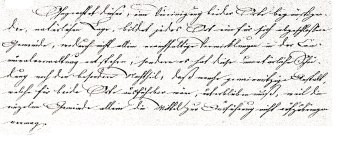 Ungeachtet dieser, eine Vereinigung beider Orte begünstigen-
der, natürlichen Lage, bildet jedes Ort eine für sich abgeschlossene
Gemeinde, wodurch nicht allein mannigfaltige Verwicklungen in der Ge-
meindeverwaltung entstehen, sondern es hat diese unnatürliche Thei-
lung noch den besondern Nachtheil, daß manche gemeinnützige Anstalt,
welche für beide Orte ausführbar wäre, unterbleiben muß, weil die
einzelne Gemeinde allein die Mittel zur Ausführung nicht aufzubringen
vermag.